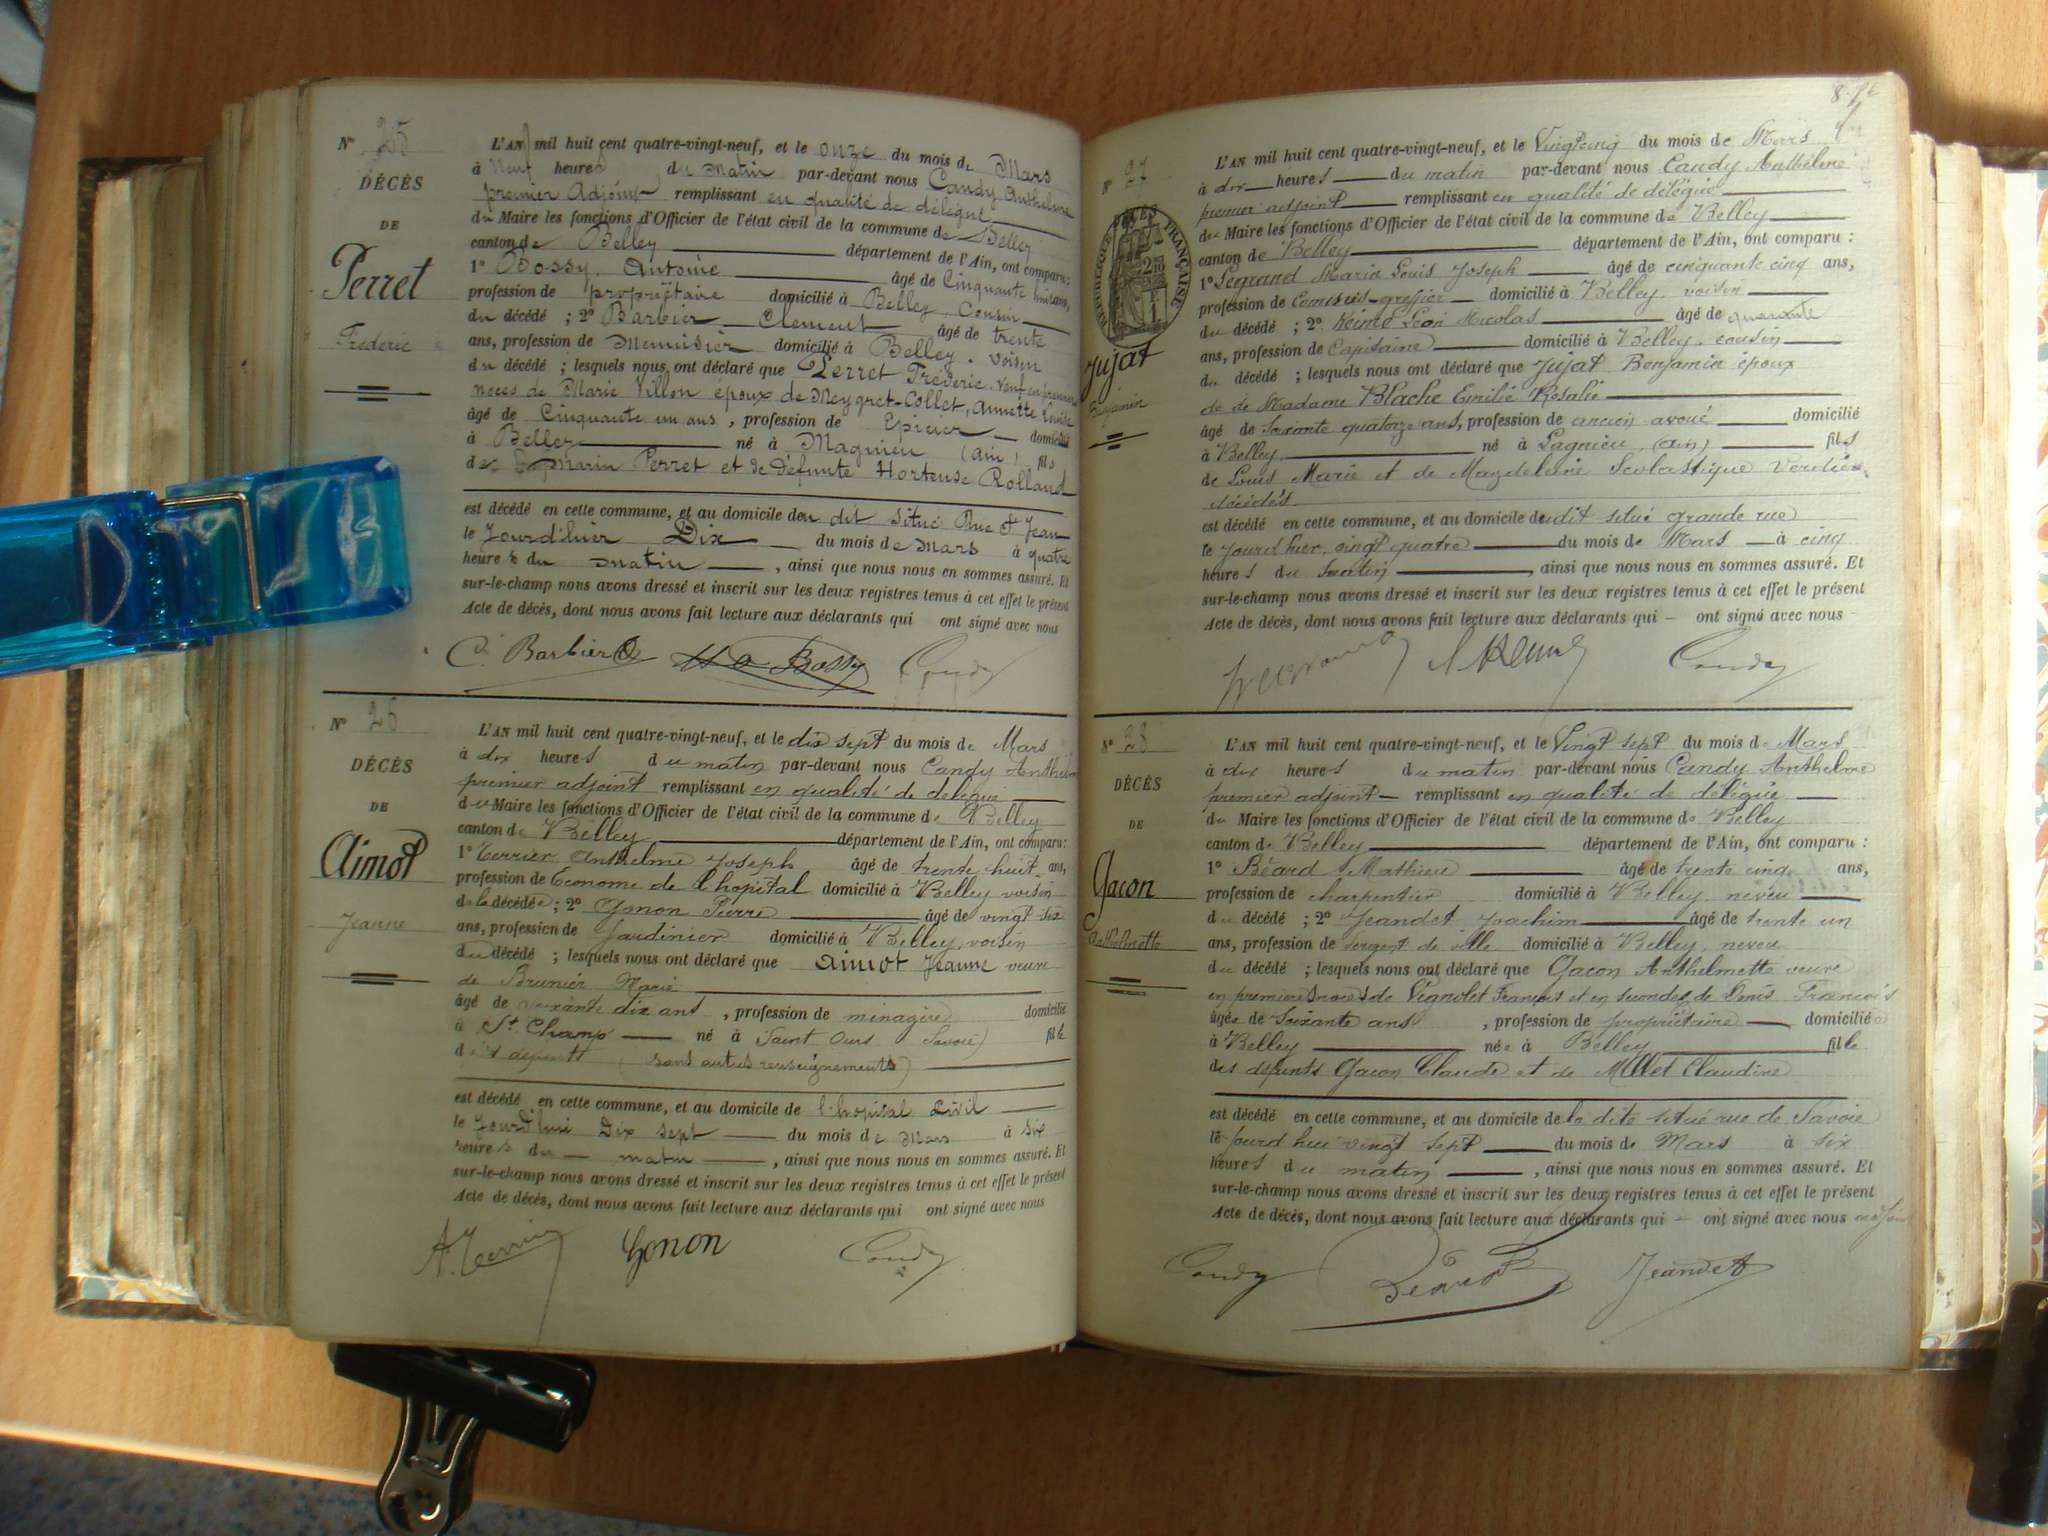 N° 25
DÉCÈS
DE
Perret
Frédéric
L'AN mil huit cent quatre-vingt-neuf, et le onze du mois de Mars
à Neuf heures du Matin par-devant nous Candy Anthelme
premier Adjoint remplissant en qualité de délégué
du Maire les fonctions d'Officier de l'état civil de la commune de Belley
canton de Belley département de l'Ain, ont comparu :
1° Bossy Antoine âgé de Cinquante huit ans,
profession de propriétaire domicilié à Belley, Cousin
du décédé ; 2° Barbier Clement âgé de trente
ans, profession de Menuisier domicilié à Belley. voisin
du décédé ; lesquels nous ont déclaré que Perret Frédéric veuf en premières
noces de Marie Villon époux de Meygret-Collet, Annette Louise
âgé de Cinquante un ans, profession de Epicier domicilié
à Belley né à Magnieu (Ain) fils
de Marin Perret et de Défunte Hortense Rolland
est décédé en cette commune, et au domicile du dit situé Rue St Jean
le Jourd'hier Dix du mois de Mars à quatre
heures du matin, ainsi que nous nous en sommes assuré. Et
sur-le-champ nous avons dressé et inscrit sur les deux registres tenus à cet effet le présent
Acte de décès, dont nous avons fait lecture aux déclarants qui ont signé avec nous
C. Barbier Bossy Candy
N° 26
DÉCÈS
DE
Aimot
Jeanne
L'AN mil huit cent quatre-vingt-neuf, et le dix sept du mois de Mars
à dix heures du matin par-devant nous Candy Anthelme
premier adjoint remplissant en qualité de délégué
du Maire les fonctions d'Officier de l'état civil de la commune de Belley
canton de Belley département de l'Ain, ont comparu :
1° Terrier Anthelme Joseph âgé de trente huit ans,
profession de Econome de l'hopital domicilié à Belley voisin
de la décédée ; 2° Gonon Pierre âgé de vingt six
ans, profession de Jardinier domicilié à Belley, voisin
du décédé ; lesquels nous ont déclaré que Aimot Jeanne veuve
de Brunier Marie
âgé de soixante dix ans, profession de ménagère domicilié
à St Champ né à Saint Ours Savoie) fille
des défunts (sans autres renseignements)
est décédé en cette commune, et au domicile de l'hopital Civil
le Jourd'hui Dix sept du mois de Mars à six
heures du matin, ainsi que nous nous en sommes assuré. Et
sur-le-champ nous avons dressé et inscrit sur les deux registres tenus à cet effet le présent
Acte de décès, dont nous avons fait lecture aux déclarants qui ont signé avec nous
A. Terrier Gonon Candy
N° 27
DÉCÈS
RÉPUBLIQUE FRANÇAISE
Jujat
Benjamin
L'AN mil huit cent quatre-vingt-neuf, et le Vingt cinq du mois de Mars
à dix heures du matin par-devant nous Candy Anthelme
premier adjoint remplissant en qualité de délégué
du Maire les fonctions d'Officier de l'état civil de la commune de Belley
canton de Belley département de l'Ain, ont comparu :
1° Legrand Marin Louis Joseph âgé de cinquante cinq ans,
profession de Commis-greffier domicilié à Belley, voisin
du décédé ; 2° Léon Nicolas âgé de quarante
ans, profession de Capitaine domicilié à Belley, cousin
du décédé ; lesquels nous ont déclaré que Jujat Benjamin époux
de de Madame Blache Emilie Rosalie
âgé de Soixante quatorze ans, profession de ancien avoué domicilié
à Belley né à Lagnieu, (Ain) fils
de Louis Marie et de Magdeleine Scolastique
décédés.
est décédé en cette commune, et au domicile dudit situé grande rue
le jourd'hier, vingt quatre du mois de Mars à cinq
heures du matin, ainsi que nous nous en sommes assuré. Et
sur-le-champ nous avons dressé et inscrit sur les deux registres tenus à cet effet le présent
Acte de décès, dont nous avons fait lecture aux déclarants qui ont signé avec nous
Candy
N° 28
DÉCÈS
DE
Gacon
Anthelmette
L'AN mil huit cent quatre-vingt-neuf, et le Vingt sept du mois de Mars
à dix heures du matin par-devant nous Candy Anthelme
premier adjoint remplissant en qualité de délégué
du Maire les fonctions d'Officier de l'état civil de la commune de Belley
canton de Belley département de l'Ain, ont comparu :
1° Béard Mathieu âgé de trente cinq ans,
profession de charpentier domicilié à Belley, neveu
du décédé ; 2° Jeandet Joachim âgé de trente un
ans, profession de sergent de ville domicilié à Belley, neveu
du décédé ; lesquels nous ont déclaré que Gacon Anthelmette veuve
en premieres noces de Vignolet François et en secondes de Denis François
âgée de Soixante ans, profession de propriétaire domiciliée
à Belley née à Belley fille
des défunts Gacon Claude et de Mollet Claudine
est décédé en cette commune, et au domicile de la dite situé rue de Savoie
le jourd'hui vingt sept du mois de Mars à six
heures du matin, ainsi que nous nous en sommes assuré. Et
sur-le-champ nous avons dressé et inscrit sur les deux registres tenus à cet effet le présent
Acte de décès, dont nous avons fait lecture aux déclarants qui ont signé avec nous
Candy Jeandet